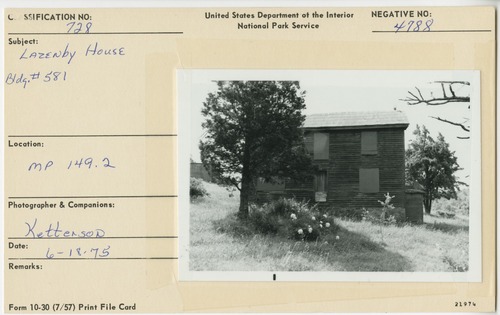 CLASSIFICATION NO:
728
United States Department of the Interior
National Park Service
NEGATIVE NO:
4788
Subject:
LAZENBY HOUSE
Bldg. # 581
Location:
MP 149.2
Photographer & Companions:
Ketterson
Date:
6-18-75
Remarks:
Form 10-30 (7/57) Print File Card
21974